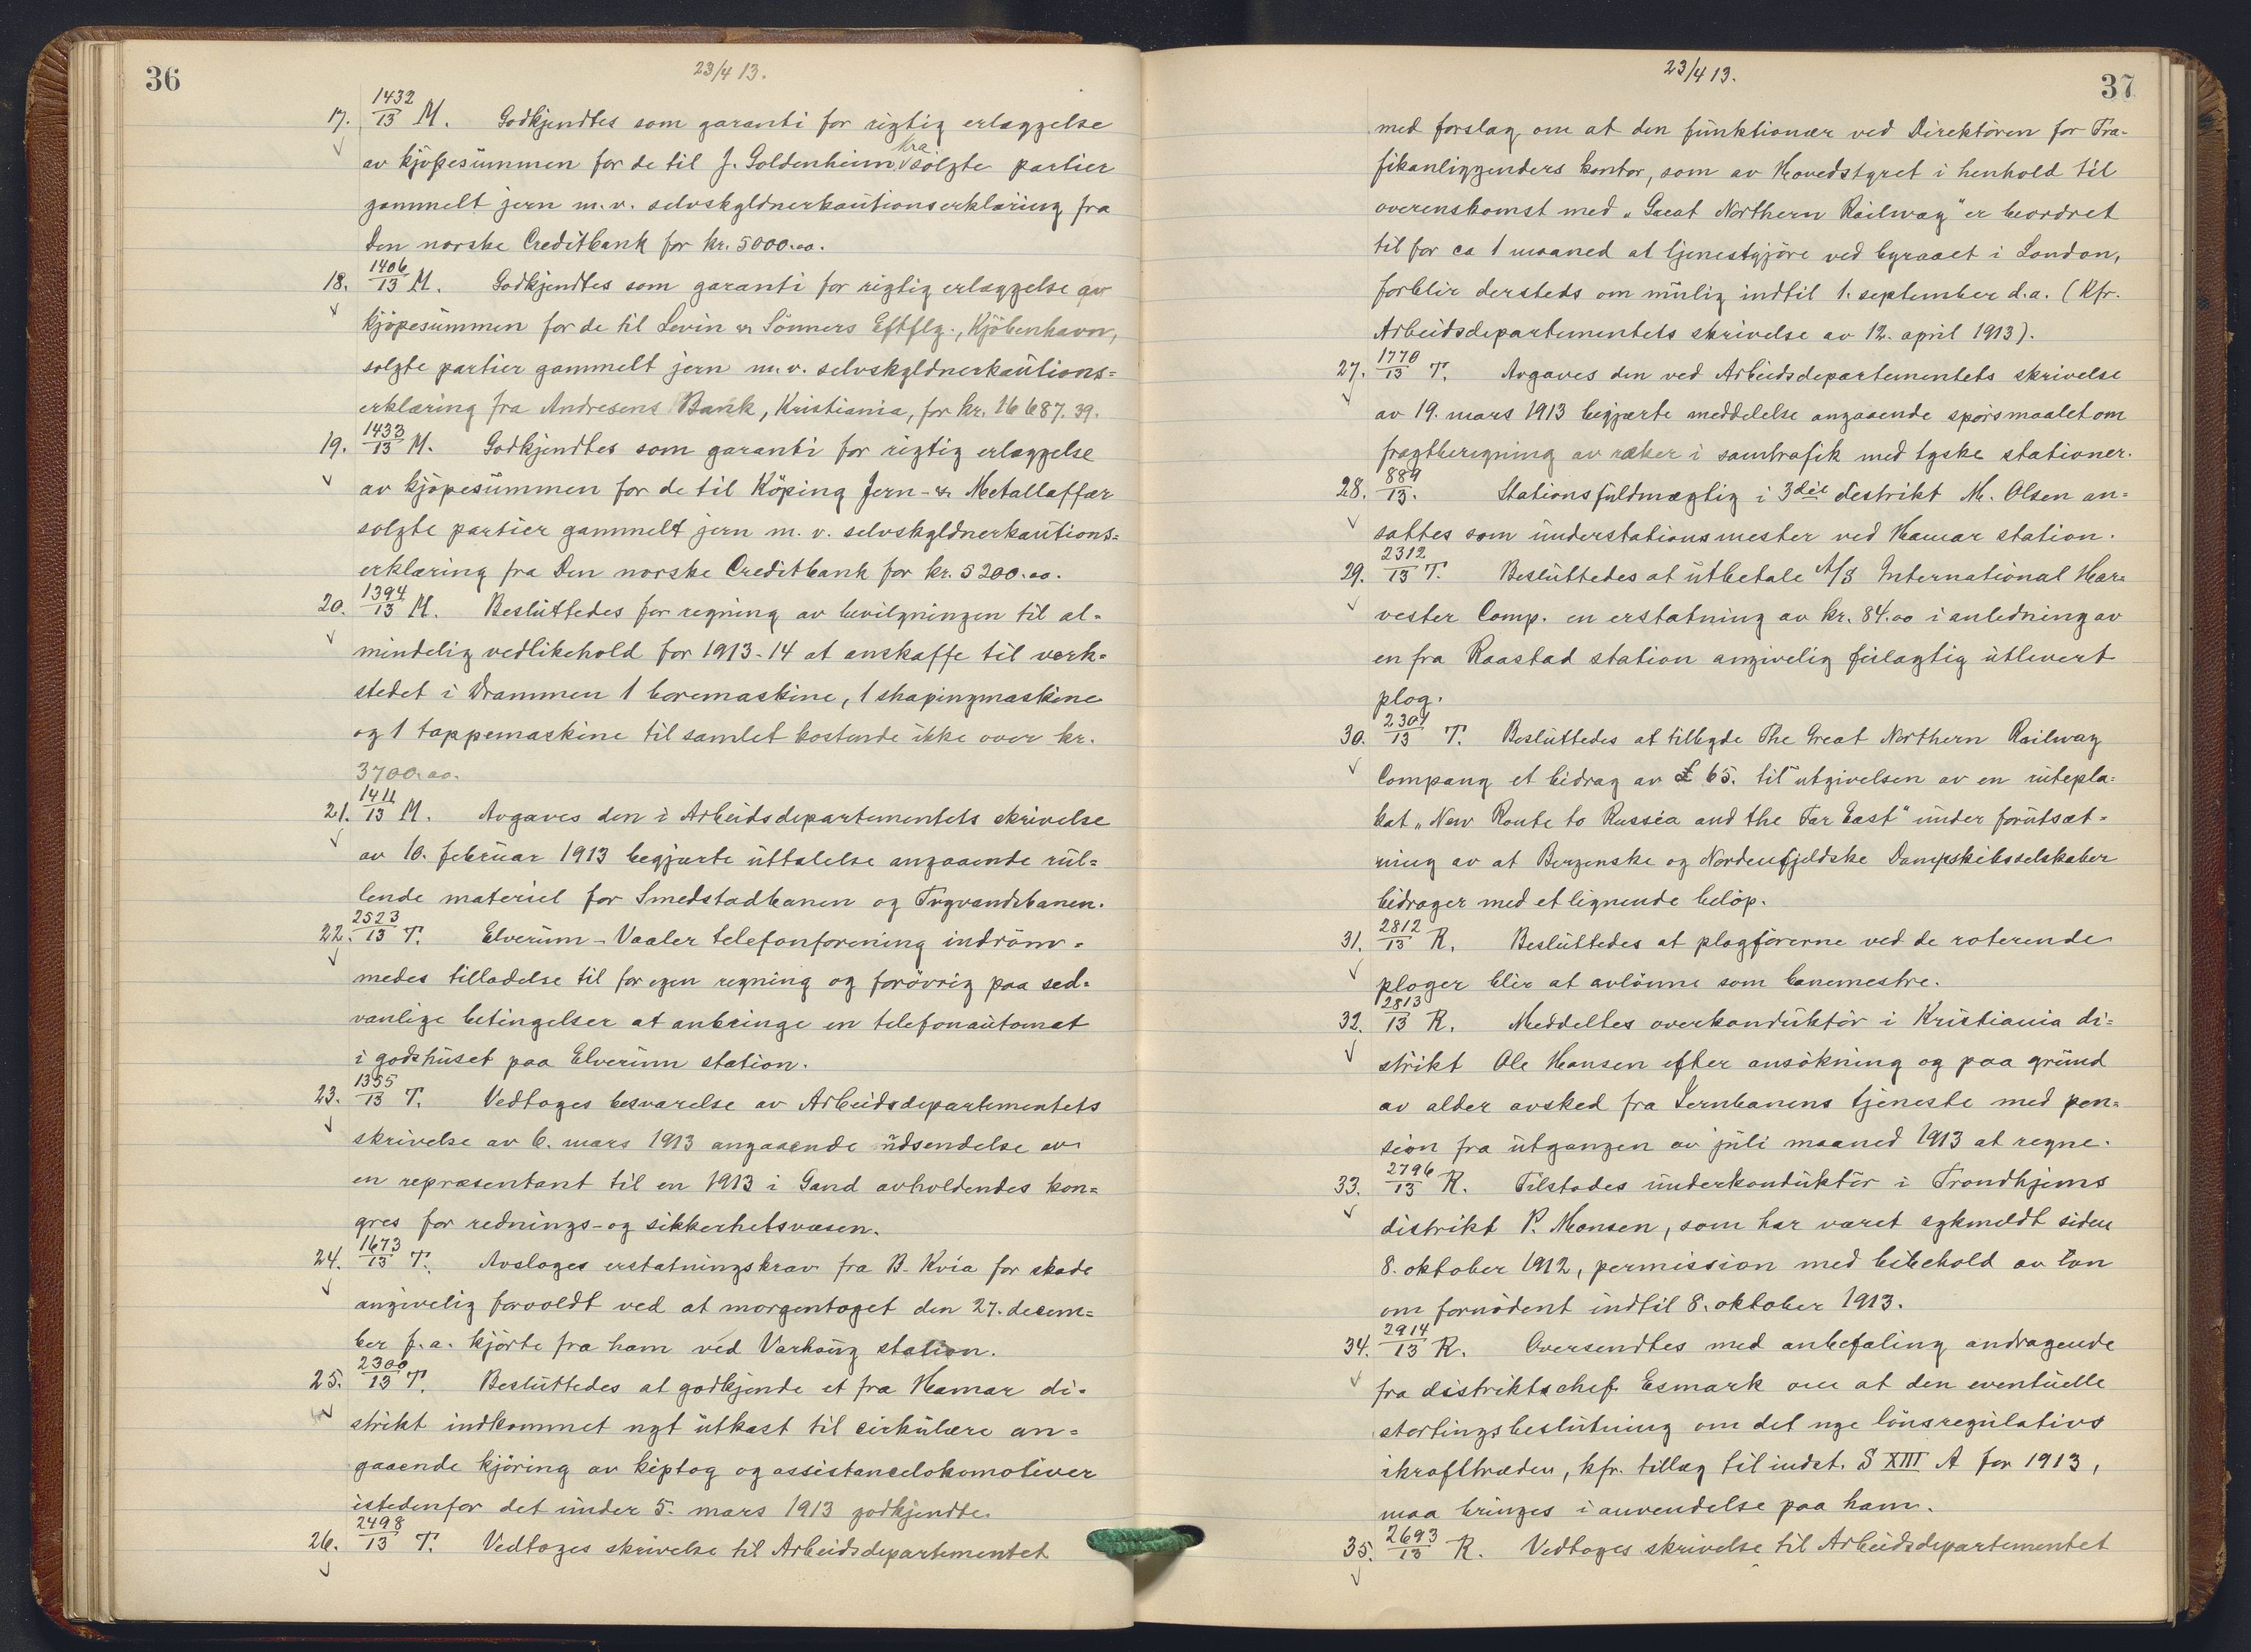 36
23/4 13.
17. 1432/13 M. Godkjendtes som garanti for rigtig erlæggelse
av kjöpesummen for de til J. Goldenheim, solgte partier
gammelt jern m.v. selvskyldnerkautionserklæring fra
Den norske Creditbank for kr. 5000.00.
18. 1406/13 M. Godkjendtes som garanti for rigtig erlæggelse av
kjöpesummen for de til Levin & Sönners Eftflg., Kjöbenhavn,
solgte partier gammelt jern m.v. selvskyldnerkautions=
erklæring fra Andresens Bank, Kristiania, for kr. 16 687.39.
19. 1433/13 M. Godkjendtes som garanti for rigtig erlæggelse
av kjöpesummen for de til Köping Jern- & Metallaffær
solgte partier gammelt jern m. v. selvskyldnerkautions=
erklæring fra Den norske Creditbank for kr. 5200.00.
20. 1394/13 M. Besluttedes for regning av bevilgningen til al=
mindelig vedlikehold for 1913-14 at anskaffe til verk=
stedet i Drammen 1 boremaskine, 1 shapingmaskine
og 1 tappemaskine til samlet kostende ikke over kr.
3700.00.
21. 1411/13 M. Avgaves den i Arbeidsdepartementets skrivelse
av 10. februar 1913 begjærte uttalelse angaaende rul=
lende materiel for Smedstadbanen og Tryvandsbanen.
22. 2523/13 T. Elverum-Vaaler telefonforening indröm=
medes tilladelse til for egen regning og forövrig paa sed=
vanlige betingelser at anbringe en telefonautomat
i godshuset paa Elverum station.
23. 1355/13 T. Vedtoges besvarelse av Arbeidsdepartementets
skrivelse av 6. mars 1913 angaaende udsendelse av
en repræsentant til en 1913 i Gand avholdendes kon=
gres for rednings- og sikkerhetsvæsen.
24. 1673/13 T. Avsloges erstatningskrav fra B. Kvia for skade
angivelig forvoldt ved at morgentoget den 27. decem=
ber f.a. kjörte fra ham ved Varhaug station.
25. 2300/13 T. Besluttedes at godkjende et fra Hamar di=
strikt indkommet nyt utkast til cirkulære an=
gaaende kjöring av kiptog og assistancelokomotiver
istedenfor det under 5. mars 1913 godkjendte.
26. 2498/13 T. Vedtoges skrivelse til Arbeidsdepartementet
37
23/4 13.
med forslag om at den funktionær ved Direktören for Tra-
fikanliggenders kontor, som av Hovedstyret i henhold til
overenskomst med „Great Northern Railway" er beordret
til for ca 1 maaned at tjenestgjöre ved byraaet i London,
forblir dersteds om mulig indtil 1. september d.a. (Kfr.
Arbeidsdepartementets skrivelse av 12. april 1913).
27. 1770/13 T. Avgaves den ved Arbeidsdepartementets skrivelse
av 19. mars 1913 begjærte meddelelse angaaende spörsmaalet om
fragtberegning av ræker i samtrafik med tyske stationer.
28. 889/13. Stationsfuldmægtig i 3die distrikt M. Olsen an=
sattes som understationsmester ved Hamar station.
29. 2312/13 T. Besluttedes at utbetale A/S International Har=
vester Comp. en erstatning av kr. 84.00 i anledning av
en fra Raastad station angivelig feilagtig utlevert
plog.
30. 2301/13 T. Besluttedes at tilbyde The Great Northern Railway
Company et bidrag av £ 65. til utgivelsen av en rutepla=
kat „New Route to Russia and the Far East" under forutsæt=
ning av at Bergenske og Nordenfjeldske Dampskibsselskaber
bidrager med et lignende belöp.
31. 2812/13 R. Besluttedes at plogförerne ved de roterende
ploger blir at avlönne som banemestre.
32. 2813/13 R. Meddeltes overkonduktör i Kristiania di=
strikt Ole Hansen efter ansökning og paa grund
av alder avsked fra Jernbanens tjeneste med pen=
sion fra utgangen av juli maaned 1913 at regne.
33. 2796/13 R. Tilstodes underkonduktör i Trondhjems
distrikt P. Monsen, som har været sykmeldt siden
8. oktober 1912, permission med bibehold av lön
om fornödent indtil 8. oktober 1913.
34. 2914/13 R. Oversendtes med anbefaling andragende
fra distriktschef Esmark om at den eventuelle
stortingsbeslutning om det nye lönsregulativs
ikrafttræden, kfr. tillæg til indst. S XIII A for 1913,
maa bringes i anvendelse paa ham.
35. 2693/13 R. Vedtoges skrivelse til Arbeidsdepartementet